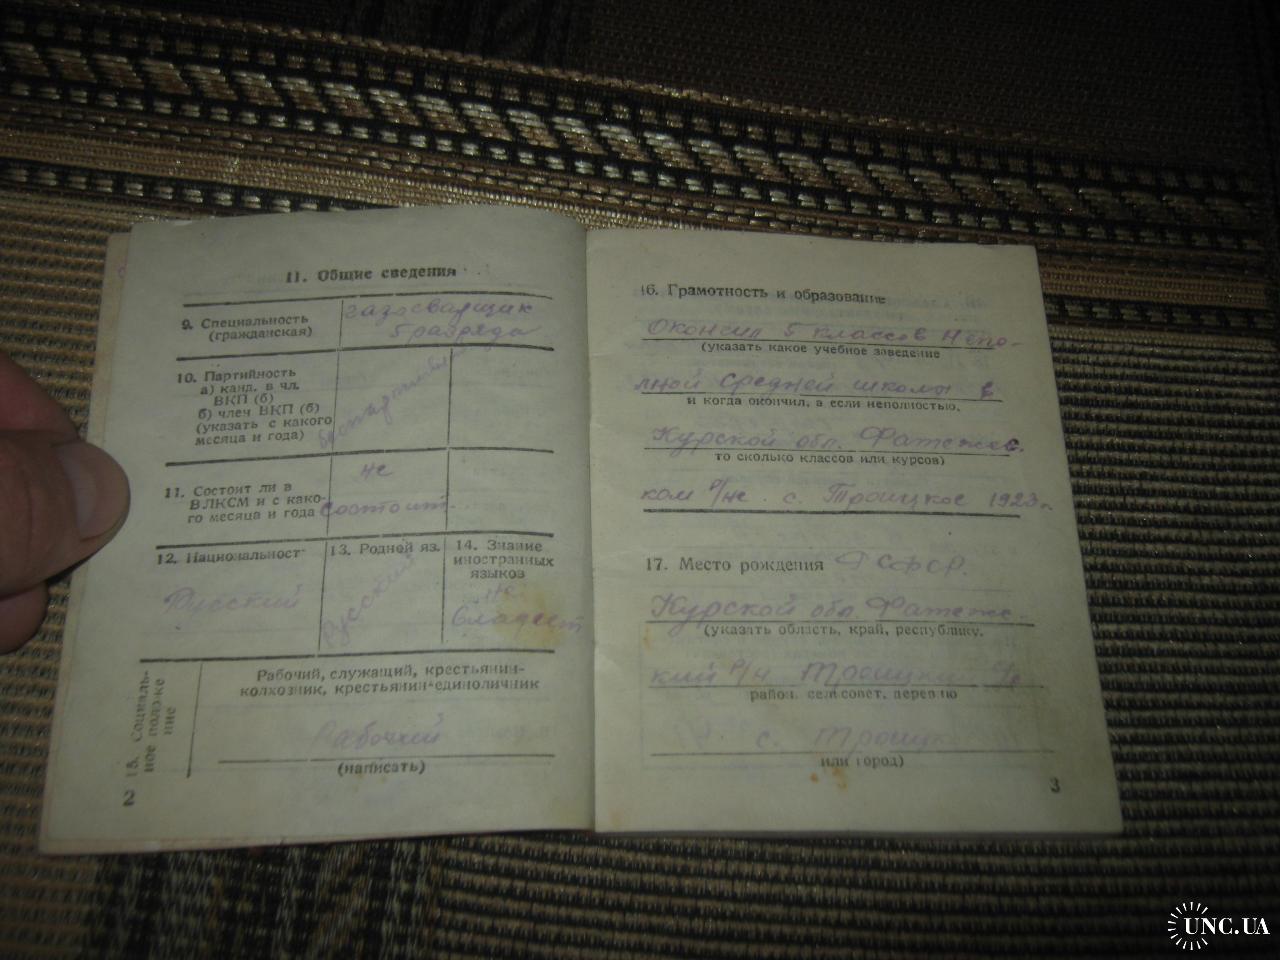 11. Общие сведения
9. Специальность
(гражданская)
газосварщик
5 разряда
10. Партийность
а) канд. в чл.
ВКП (б)
б) член ВКП (б)
(указать с какого
месяца и года)
беспартийный
11. Состоит ли в
ВЛКСМ и с како-
го месяца и года
не
состоит.
12. Национальност
Русский
13. Родной яз.
русский
14. Знание
иностранных
языков
не
владеет
15. Социаль-
ное положе
ние
Рабочий, служащий, крестьянин-
колхозник, крестьянин-единоличник
Рабочий
(написать)
2
16. Грамотность и образование
Окончил 5 классов Непо-
(указать какое учебное заведение
лной средней школы в
и когда окончил, а если неполностью,
Курской обл. Фатежс.
то сколько классов или курсов)
ком р/не. с. Троицкое 1923 г.
17. Место рождения РСФСР.
Курской обл. Фатежс.
(указать область, край, республику,
кий р/н. Троицкий с/с
район, сельсовет, деревню
с. Троицк
или город)
3
UNC.UA